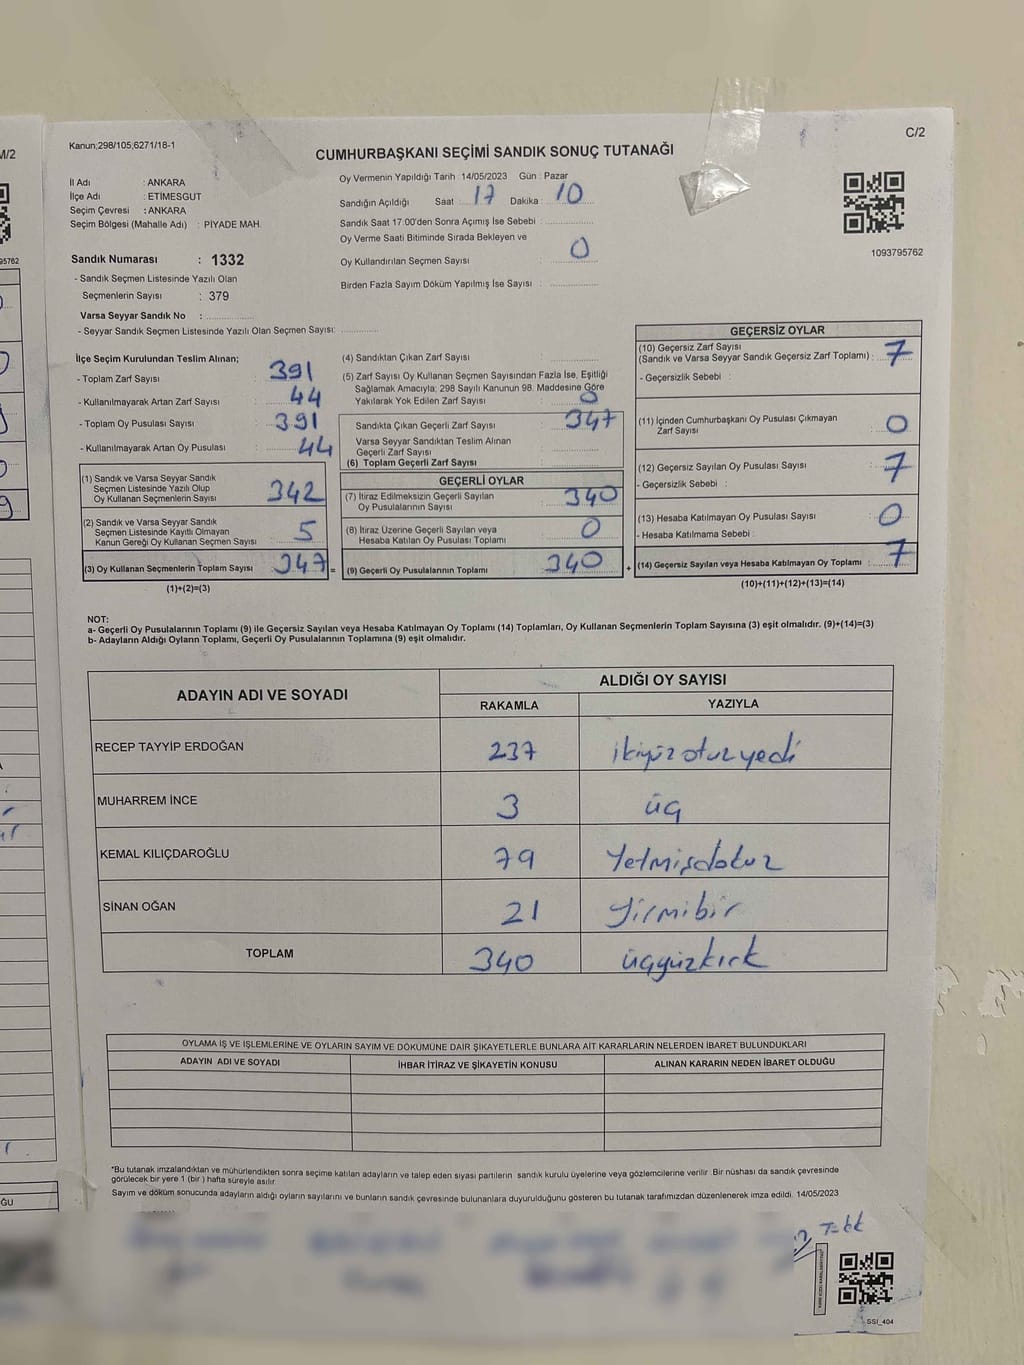 Kanun;298/105;6271/18-1
C/2
M/2
CUMHURBAŞKANI SEÇİMİ SANDIK SONUÇ TUTANAĞI
İl Adı : ANKARA
İlçe Adı : ETİMESGUT
Seçim Çevresi : ANKARA
Seçim Bölgesi (Mahalle Adı) : PİYADE MAH.
Oy Vermenin Yapıldığı Tarih : 14/05/2023 Gün : Pazar
Sandığın Açıldığı Saat : 17 Dakika : 10
Sandık Saat 17:00'den Sonra Açımış İse Sebebi :
Oy Verme Saati Bitiminde Sırada Bekleyen ve
Oy Kullandırılan Seçmen Sayısı : 0
Birden Fazla Sayım Döküm Yapılmış İse Sayısı :
1093795762
95762
Sandık Numarası : 1332
- Sandık Seçmen Listesinde Yazılı Olan
Seçmenlerin Sayısı : 379
Varsa Seyyar Sandık No :
- Seyyar Sandık Seçmen Listesinde Yazılı Olan Seçmen Sayısı:
İlçe Seçim Kurulundan Teslim Alınan;
- Toplam Zarf Sayısı 391
- Kullanılmayarak Artan Zarf Sayısı 44
- Toplam Oy Pusulası Sayısı 391
- Kullanılmayarak Artan Oy Pusulası 44
(1) Sandık ve Varsa Seyyar Sandık
Seçmen Listesinde Yazılı Olup
Oy Kullanan Seçmenlerin Sayısı 342
(2) Sandık ve Varsa Seyyar Sandık
Seçmen Listesinde Kayıtlı Olmayan
Kanun Gereği Oy Kullanan Seçmen Sayısı 5
(3) Oy Kullanan Seçmenlerin Toplam Sayısı 347 =
(1)+(2)=(3)
(4) Sandıktan Çıkan Zarf Sayısı
(5) Zarf Sayısı Oy Kullanan Seçmen Sayısından Fazla İse, Eşitliği
Sağlamak Amacıyla; 298 Sayılı Kanunun 98. Maddesine Göre
Yakılarak Yok Edilen Zarf Sayısı 0
Sandıkta Çıkan Geçerli Zarf Sayısı 347
Varsa Seyyar Sandıktan Teslim Alınan
Geçerli Zarf Sayısı
(6) Toplam Geçerli Zarf Sayısı
GEÇERLİ OYLAR
(7) İtiraz Edilmeksizin Geçerli Sayılan
Oy Pusulalarının Sayısı 340
(8) İtiraz Üzerine Geçerli Sayılan veya
Hesaba Katılan Oy Pusulası Toplamı 0
(9) Geçerli Oy Pusulalarının Toplamı 340 +
GEÇERSİZ OYLAR
(10) Geçersiz Zarf Sayısı
(Sandık ve Varsa Seyyar Sandık Geçersiz Zarf Toplamı) : 7
- Geçersizlik Sebebi :
(11) İçinden Cumhurbaşkanı Oy Pusulası Çıkmayan
Zarf Sayısı 0
(12) Geçersiz Sayılan Oy Pusulası Sayısı 7
- Geçersizlik Sebebi :
(13) Hesaba Katılmayan Oy Pusulası Sayısı 0
- Hesaba Katılmama Sebebi :
(14) Geçersiz Sayılan veya Hesaba Katılmayan Oy Toplamı : 7
(10)+(11)+(12)+(13)=(14)
NOT:
a- Geçerli Oy Pusulalarının Toplamı (9) ile Geçersiz Sayılan veya Hesaba Katılmayan Oy Toplamı (14) Toplamları, Oy Kullanan Seçmenlerin Toplam Sayısına (3) eşit olmalıdır. (9)+(14)=(3)
b- Adayların Aldığı Oyların Toplamı, Geçerli Oy Pusulalarının Toplamına (9) eşit olmalıdır.
ADAYIN ADI VE SOYADI ALDIĞI OY SAYISI
RAKAMLA YAZIYLA
RECEP TAYYİP ERDOĞAN 237 ikiyüz otuz yedi
MUHARREM İNCE 3 üç
KEMAL KILIÇDAROĞLU 79 Yetmişdokuz
SİNAN OĞAN 21 Yirmibir
TOPLAM 340 üçyüzkırk
OYLAMA İŞ VE İŞLEMLERİNE VE OYLARIN SAYIM VE DÖKÜMÜNE DAİR ŞİKAYETLERLE BUNLARA AİT KARARLARIN NELERDEN İBARET BULUNDUKLARI
ADAYIN ADI VE SOYADI İHBAR İTİRAZ VE ŞİKAYETİN KONUSU ALINAN KARARIN NEDEN İBARET OLDUĞU
*Bu tutanak imzalandıktan ve mühürlendikten sonra seçime katılan adayların ve talep eden siyasi partilerin sandık kurulu üyelerine veya gözlemcilerine verilir. Bir nüshası da sandık çevresinde
görülecek bir yere 1 (bir ) hafta süreyle asılır.
Sayım ve döküm sonucunda adayların aldığı oyların sayılarını ve bunların sandık çevresinde bulunanlara duyurulduğunu gösteren bu tutanak tarafımızdan düzenlenerek imza edildi. 14/05/2023
SSI_404